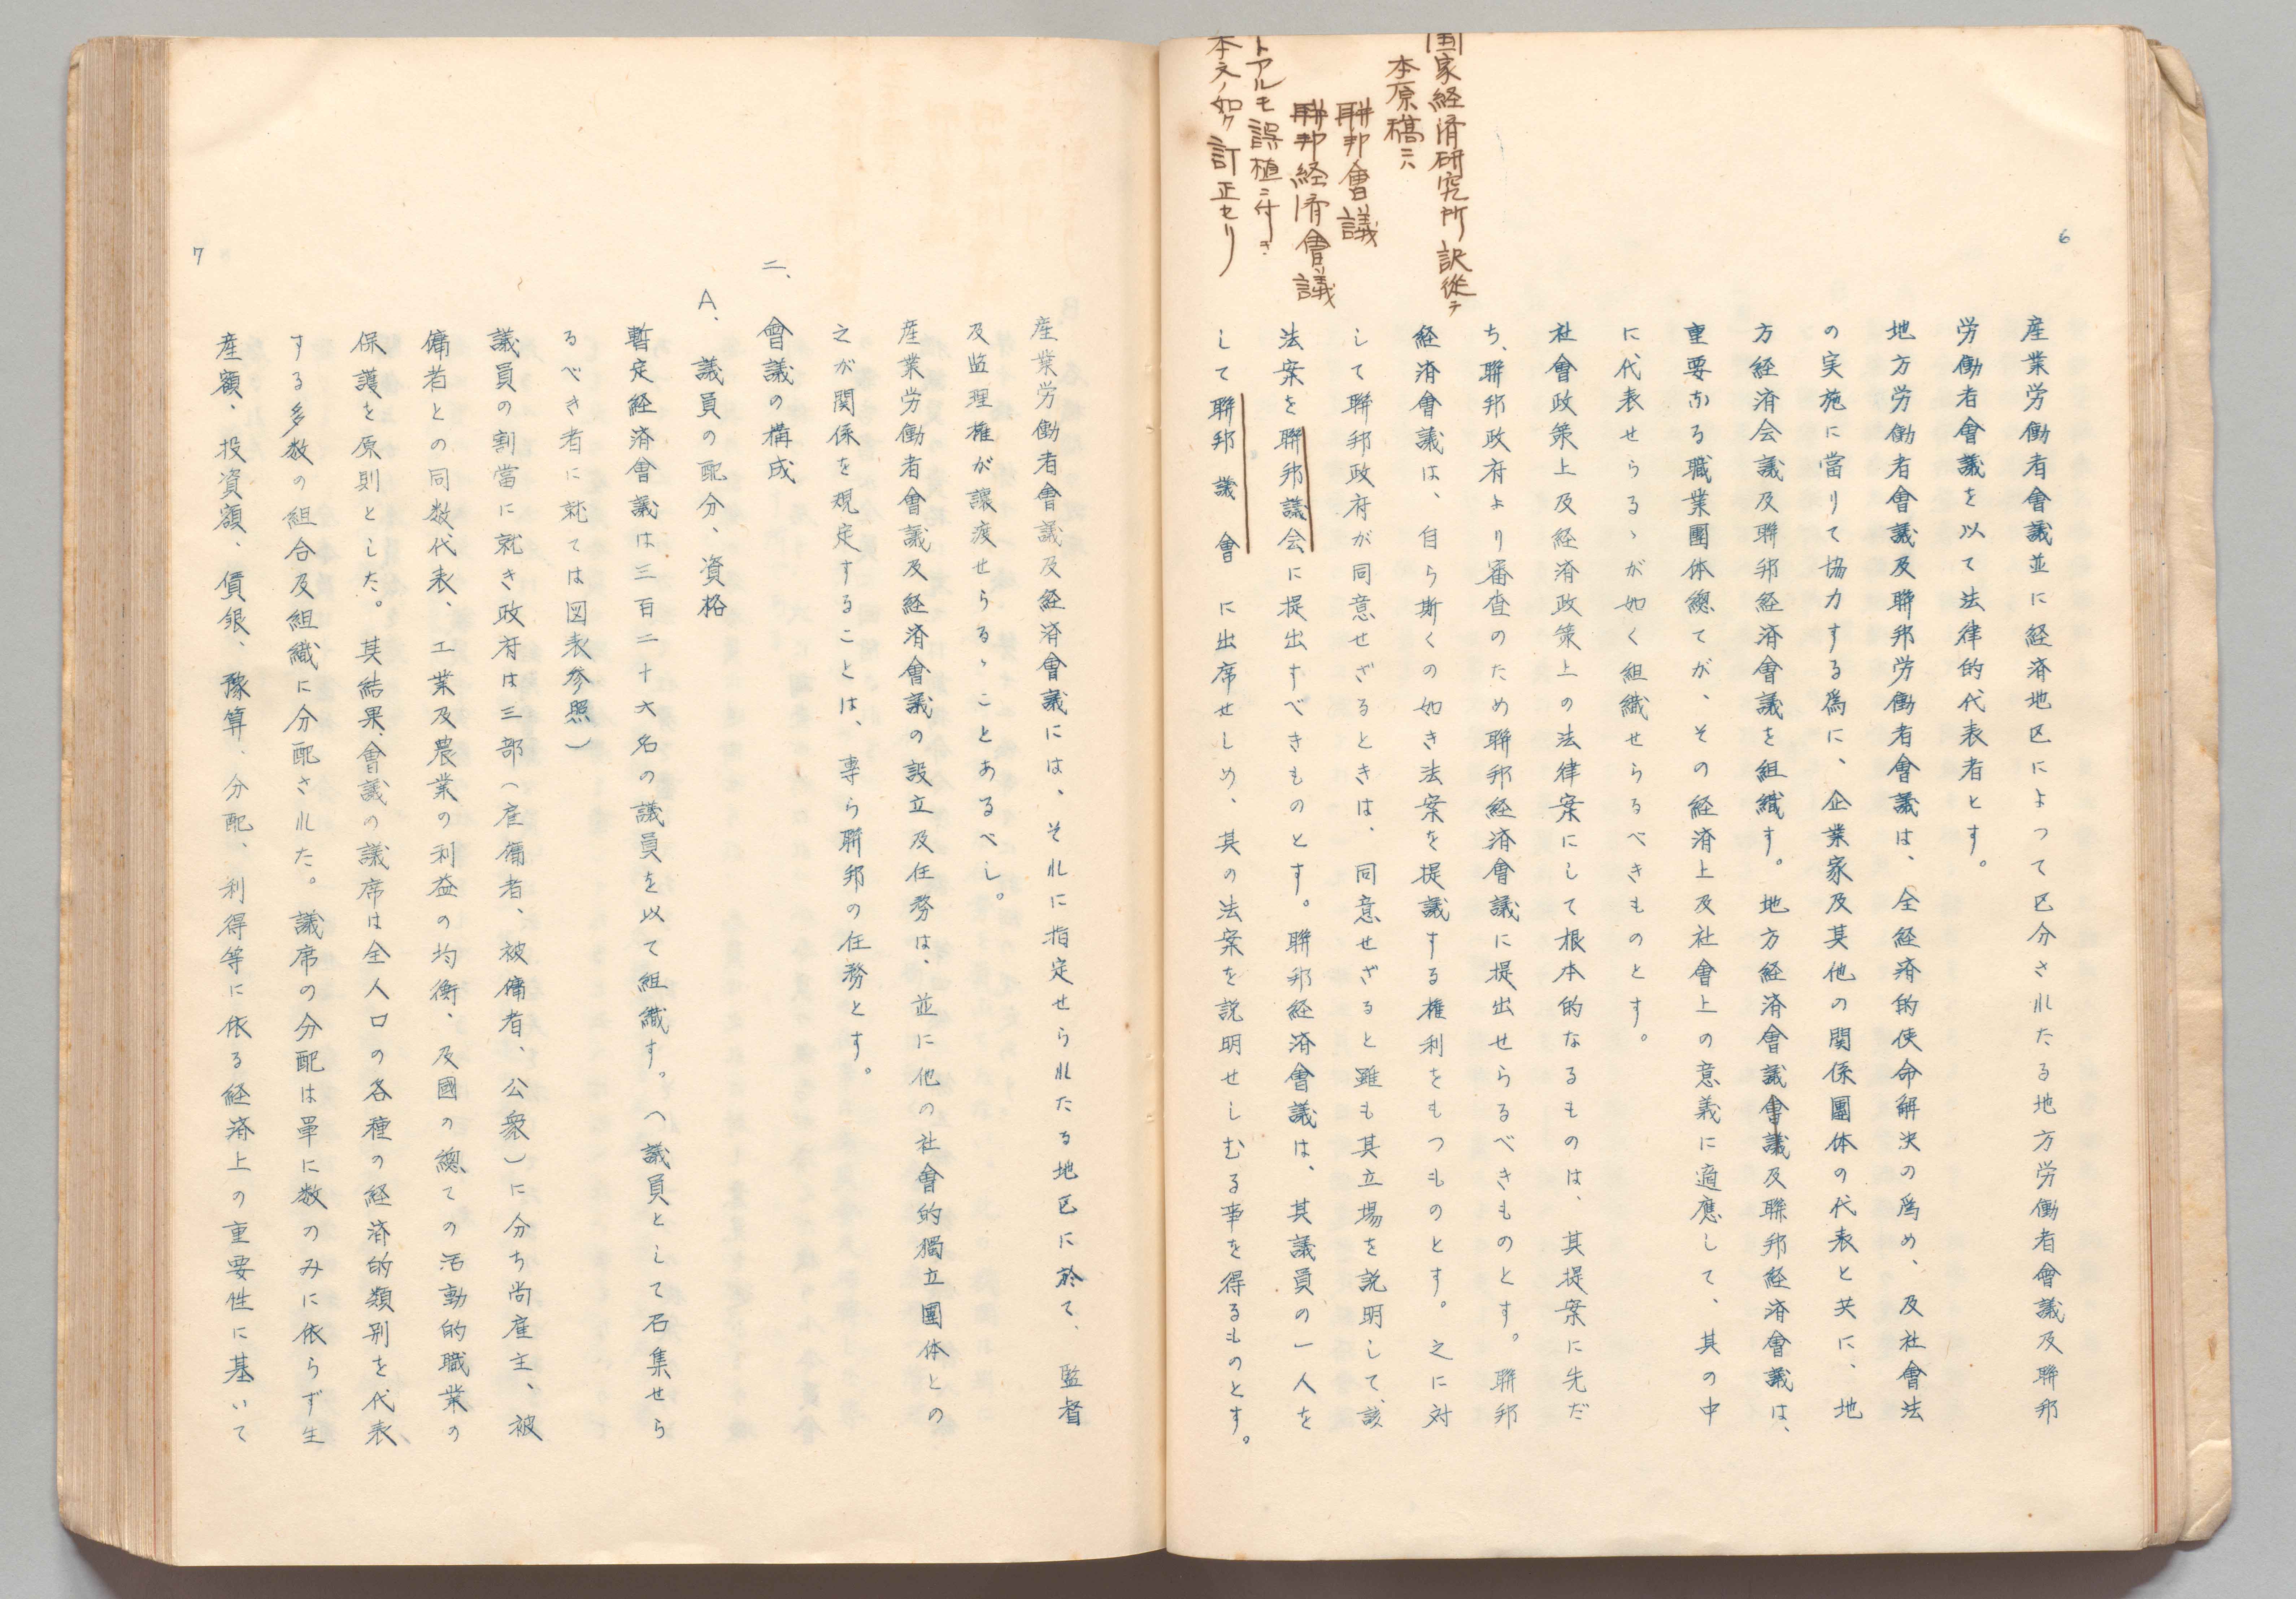 6
国家経済研究所訳従テ
本原稿ニハ
聯邦會議
聯邦経済會議
トアルモ誤植ニ付キ
本文ノ如ク訂正セリ
産業労働者會議並に経済地区によつて区分されたる地方労働者會議及聯邦
労働者會議を以て法律的代表者とす。
地方労働者會議及聯邦労働者會議は、全経済的使命解決の爲め、及社會法
の実施に當りて協力する爲に、企業家及其他の関係團体の代表と共に、地
方経済会議及聯邦経済會議を組織す。地方経済會議會議及聯邦経済會議は、
重要なる職業團体總てが、その経済上及社會上の意義に適應して、其の中
に代表せらるゝが如く組織せらるべきものとす。
社會政策上及経済政策上の法律案にして根本的なるものは、其提案に先だ
ち、聯邦政府より審査のため聯邦経済會議に提出せらるべきものとす。聯邦
経済會議は、自ら斯くの如き法案を提議する権利をもつものとす。之に対
して聯邦政府が同意せざるときは、同意せざると雖も其立場を説明して、該
法案を聯邦議会に提出すべきものとす。聯邦経済會議は、其議員の一人を
して聯邦議會に出席せしめ、其の法案を説明せしむる事を得るものとす。
産業労働者會議及経済會議には、それに指定せられたる地区に於て、監督
及監理権が譲渡せらるゝことあるべし。
産業労働者會議及経済會議の設立及任務は、並に他の社會的獨立團体との
之が関係を規定することは、專ら聯邦の任務とす。
二、會議の構成
A、議員の配分、資格
暫定経済會議は三百二十六名の議員を以て組織す。(議員として召集せら
るべき者に就ては図表参照)
議員の割當に就き政府は三部(雇傭者、被傭者、公衆)に分ち尚雇主、被
傭者との同数代表、工業及農業の利益の均衡、及國の總ての活動的職業の
保護を原則とした。其結果、會議の議席は全人口の各種の経済的類別を代表
する多数の組合及組織に分配された。議席の分配は單に数のみに依らず生
産額、投資額、賃銀、豫算、分配、利得等に依る経済上の重要性に基いて
7